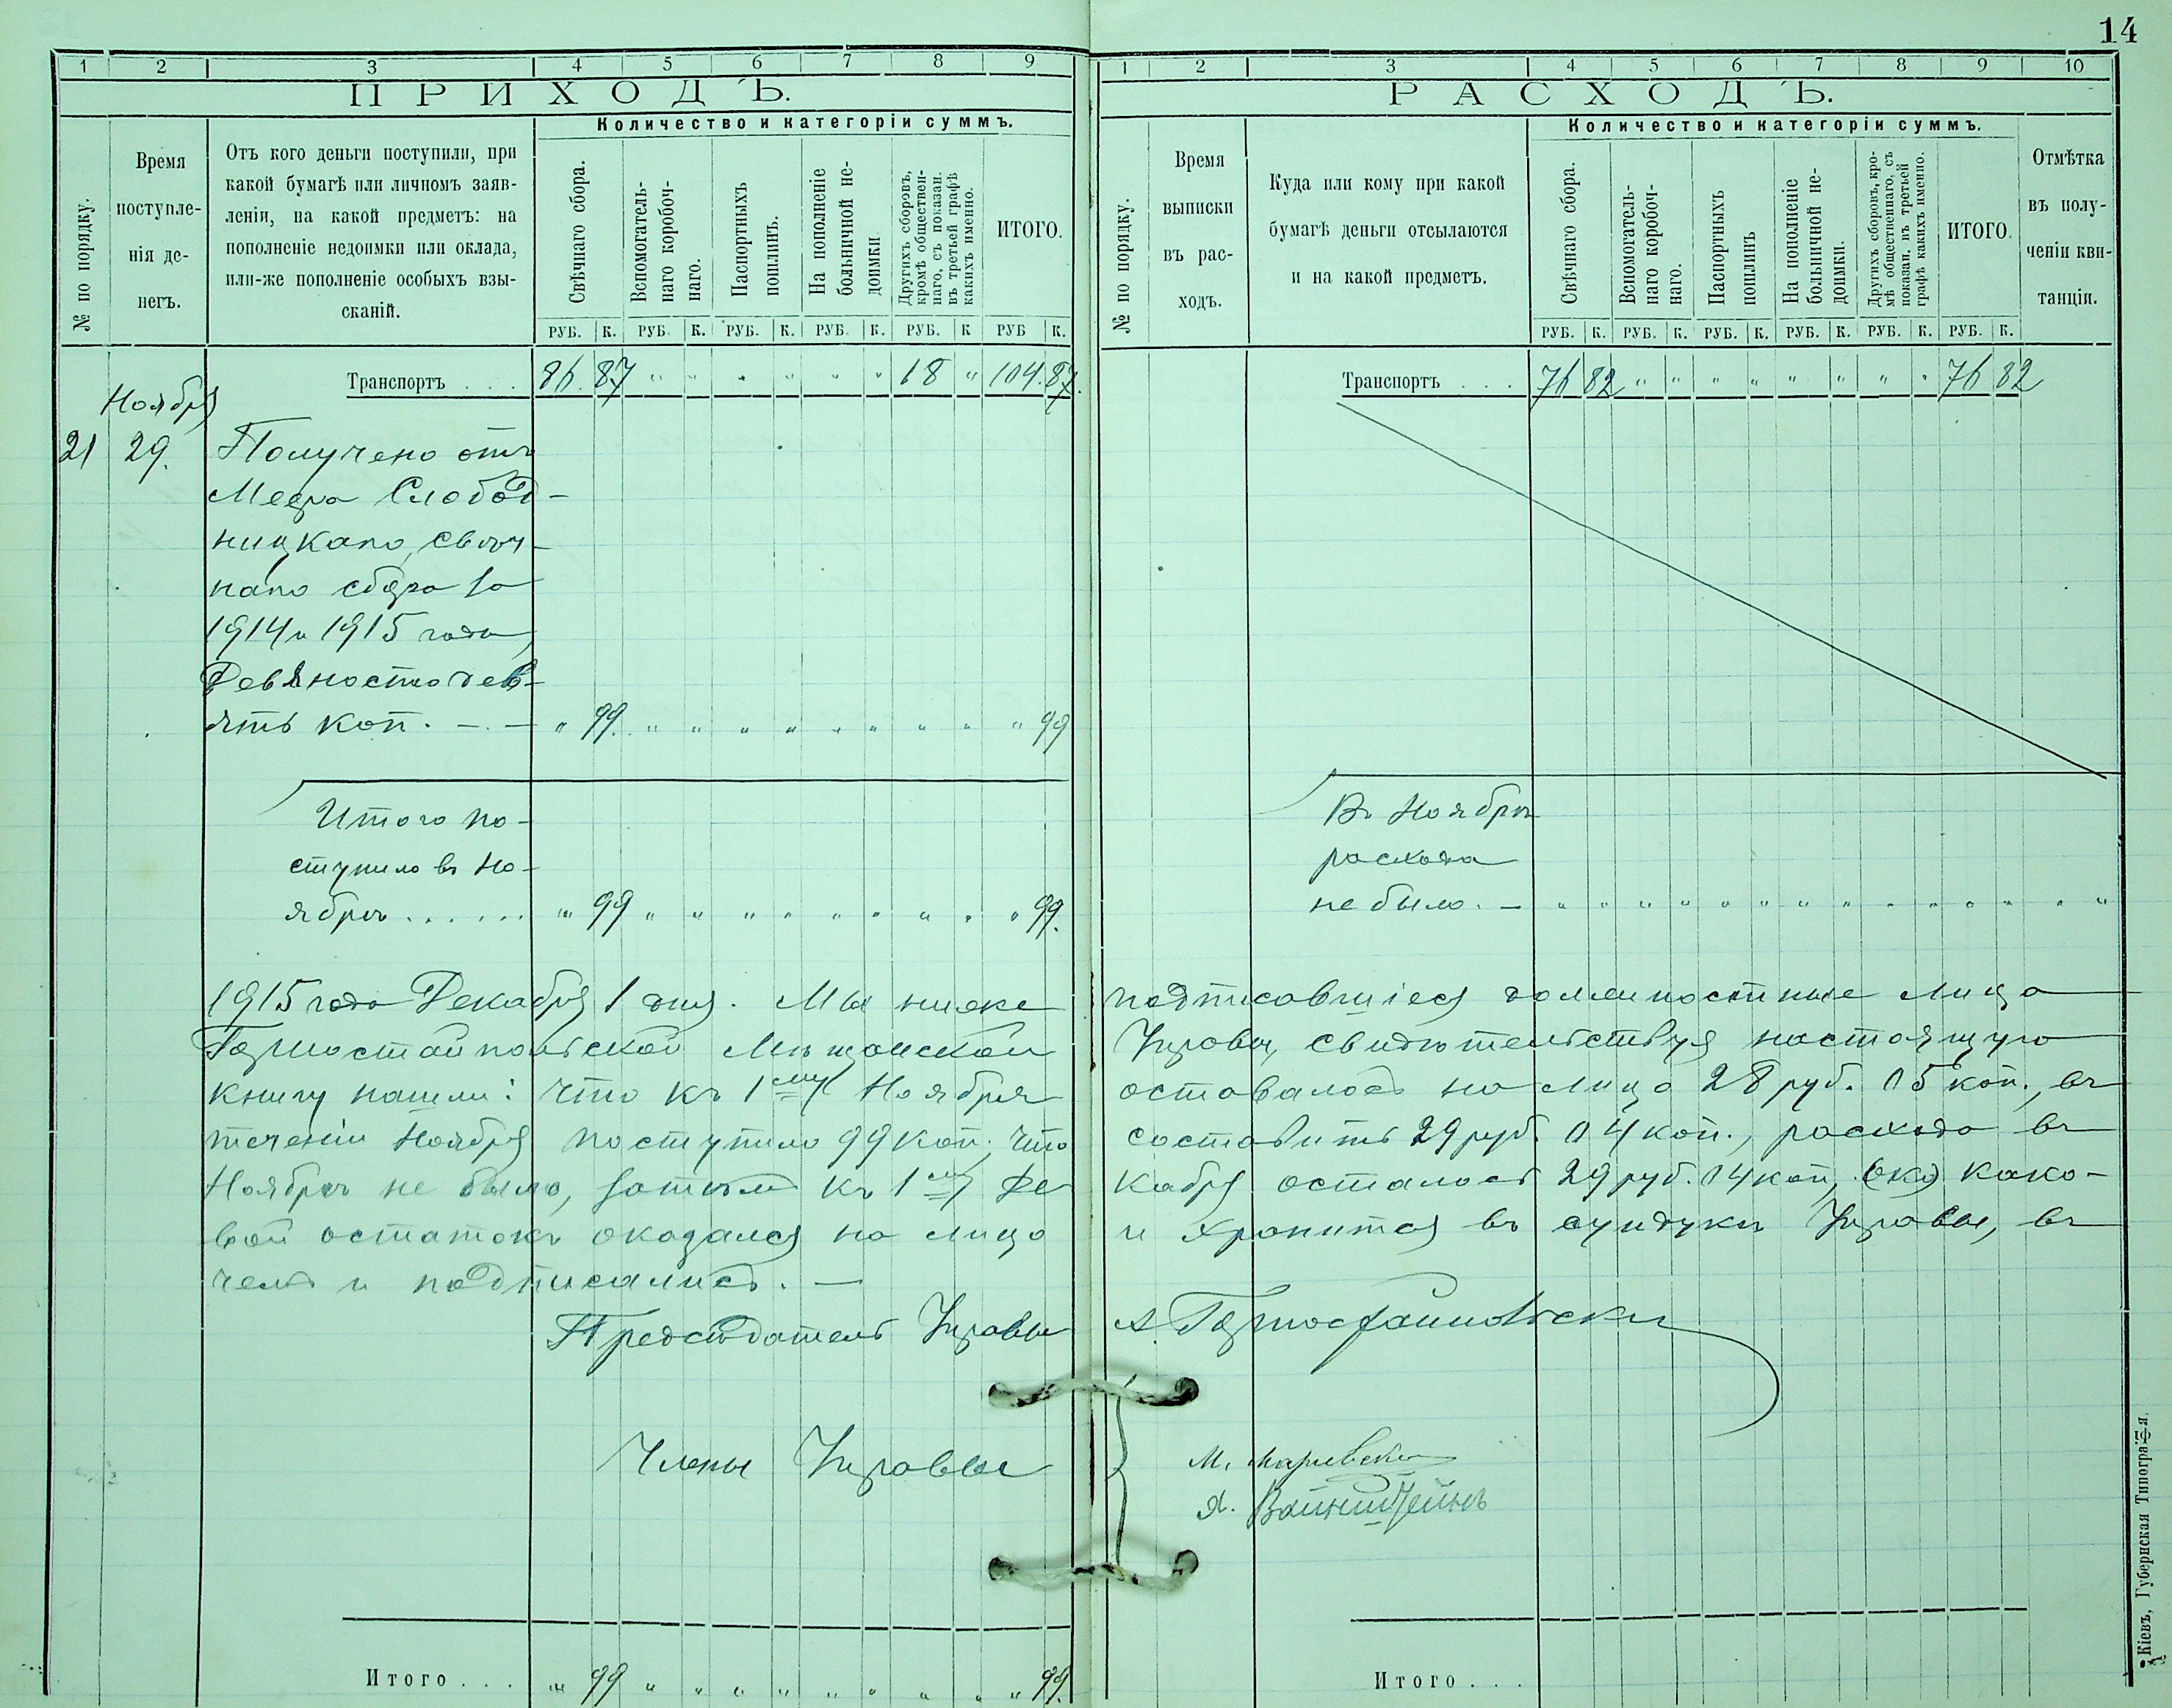 14
1 2 3 4 5 6 7 8 9
ПРИХОДЪ.
Количество и категоріи суммъ.
№ по порядку.
Время
поступле-
нія де-
негъ.
Отъ кого деньги поступили, при
какой бумагѣ или личномъ заяв-
леніи, на какой предметъ: на
пополненіе недоимки или оклада,
или-же пополненіе особыхъ взы-
сканій.
Свѣчнаго сбора.
Вспомогатель-
наго коробоч-
наго.
Паспортныхъ
пошлинъ.
На пополненіе
больничной не-
доимки
Другихъ сборовъ,
кромѣ обществен-
наго, съ показан.
въ третьей графѣ
какихъ именно.
ИТОГО.
РУБ. К. РУБ. К. РУБ. К. РУБ. К. РУБ. К РУБ К.
Транспортъ . . . 86. 87 " " " " " " 18 " 104. 87.
Ноября
21 29. Получено отъ
Меера Слобод-
ницкаго, свѣч-
наго сбора за
1914 и 1915 года,
Девяносто дев-
ять коп. — . — " 99. " " " " " " " " " 99
Итого по-
ступило въ Но-
ябрѣ . . . . . . " 99 " " " " " " " " " 99.
1 2 3 4 5 6 7 8 9 10
РАСХОДЪ.
Количество и категоріи суммъ.
№ по порядку.
Время
выписки
въ рас-
ходъ.
Куда или кому при какой
бумагѣ деньги отсылаются
и на какой предметъ.
Свѣчнаго сбора.
Вспомогатель-
наго коробоч-
наго.
Паспортныхъ
пошлинъ
На пополненіе
больничной не-
доимки.
Другихъ сборовъ, кро-
мѣ общественнаго, съ
показан. въ третьей
графѣ какихъ именно.
ИТОГО.
Отмѣтка
въ полу-
ченіи кви-
танціи.
РУБ. К. РУБ. К. РУБ. К. РУБ. К. РУБ. К. РУБ. К.
Транспортъ . . . 76 82 " " " " " " " " 76 82
Въ Ноябрѣ
расхода
не было. — " " " " " " " " " " " " "
1915 года Декабря 1 дня. Мы ниже подписавшіеся должностные лица
Мѣщанской Управы, свидѣтельствуя настоящую
книгу нашли: что къ 1му Ноября оставалось на лицо 28 руб. 05 коп., въ
теченіи Ноября поступило 99 коп. что составитъ 29 руб. 04 коп., расхода въ
Ноябрѣ не было, затѣмъ къ 1му Де кабря осталось 29 руб. 04 коп, како-
вой остатокъ оказался на лицо и хранится въ сундукѣ Управы, въ
чемъ и подписались. —
Предсѣдатель Управы
Члены Управы
М.
Я. Вайнштейнъ
Итого . . . " 99 " " " " " " " " " 99.
Итого . . .
Кіевъ, Губернская Типографія.